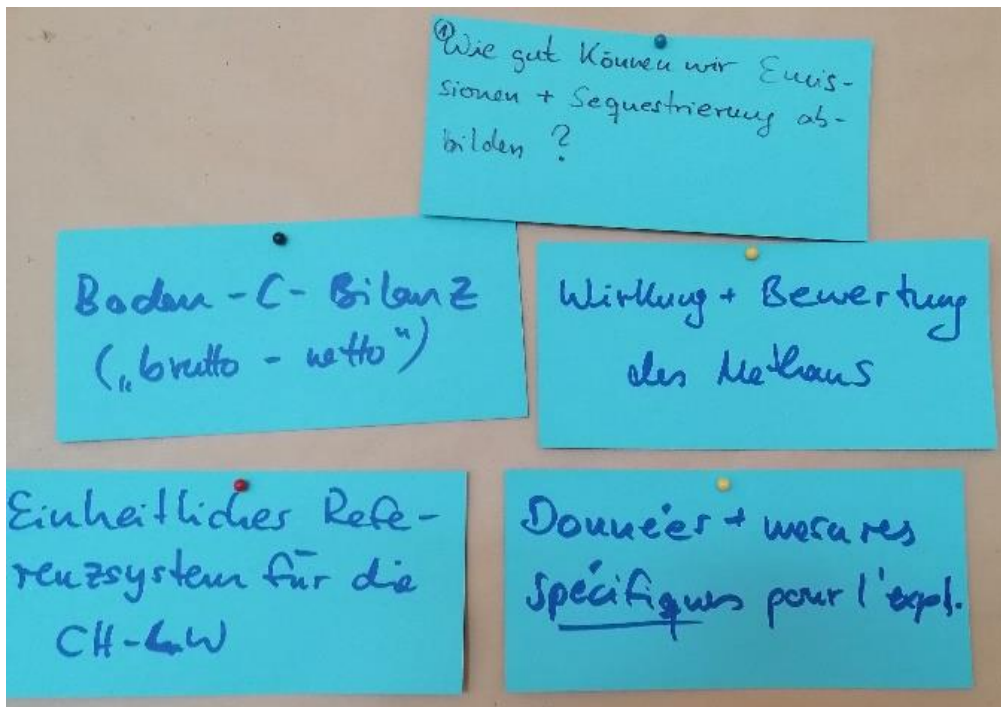 ① Wie gut Können wir Emis-
sionen + Sequestrierung ab-
bilden ?
Boden - C - Bilanz
(„brutto - netto“)
Wirkung + Bewertung
des Methans
Einheitliches Refe-
renzsystem für die
CH-LW
Données + mesures
spécifiques pour l'expl.